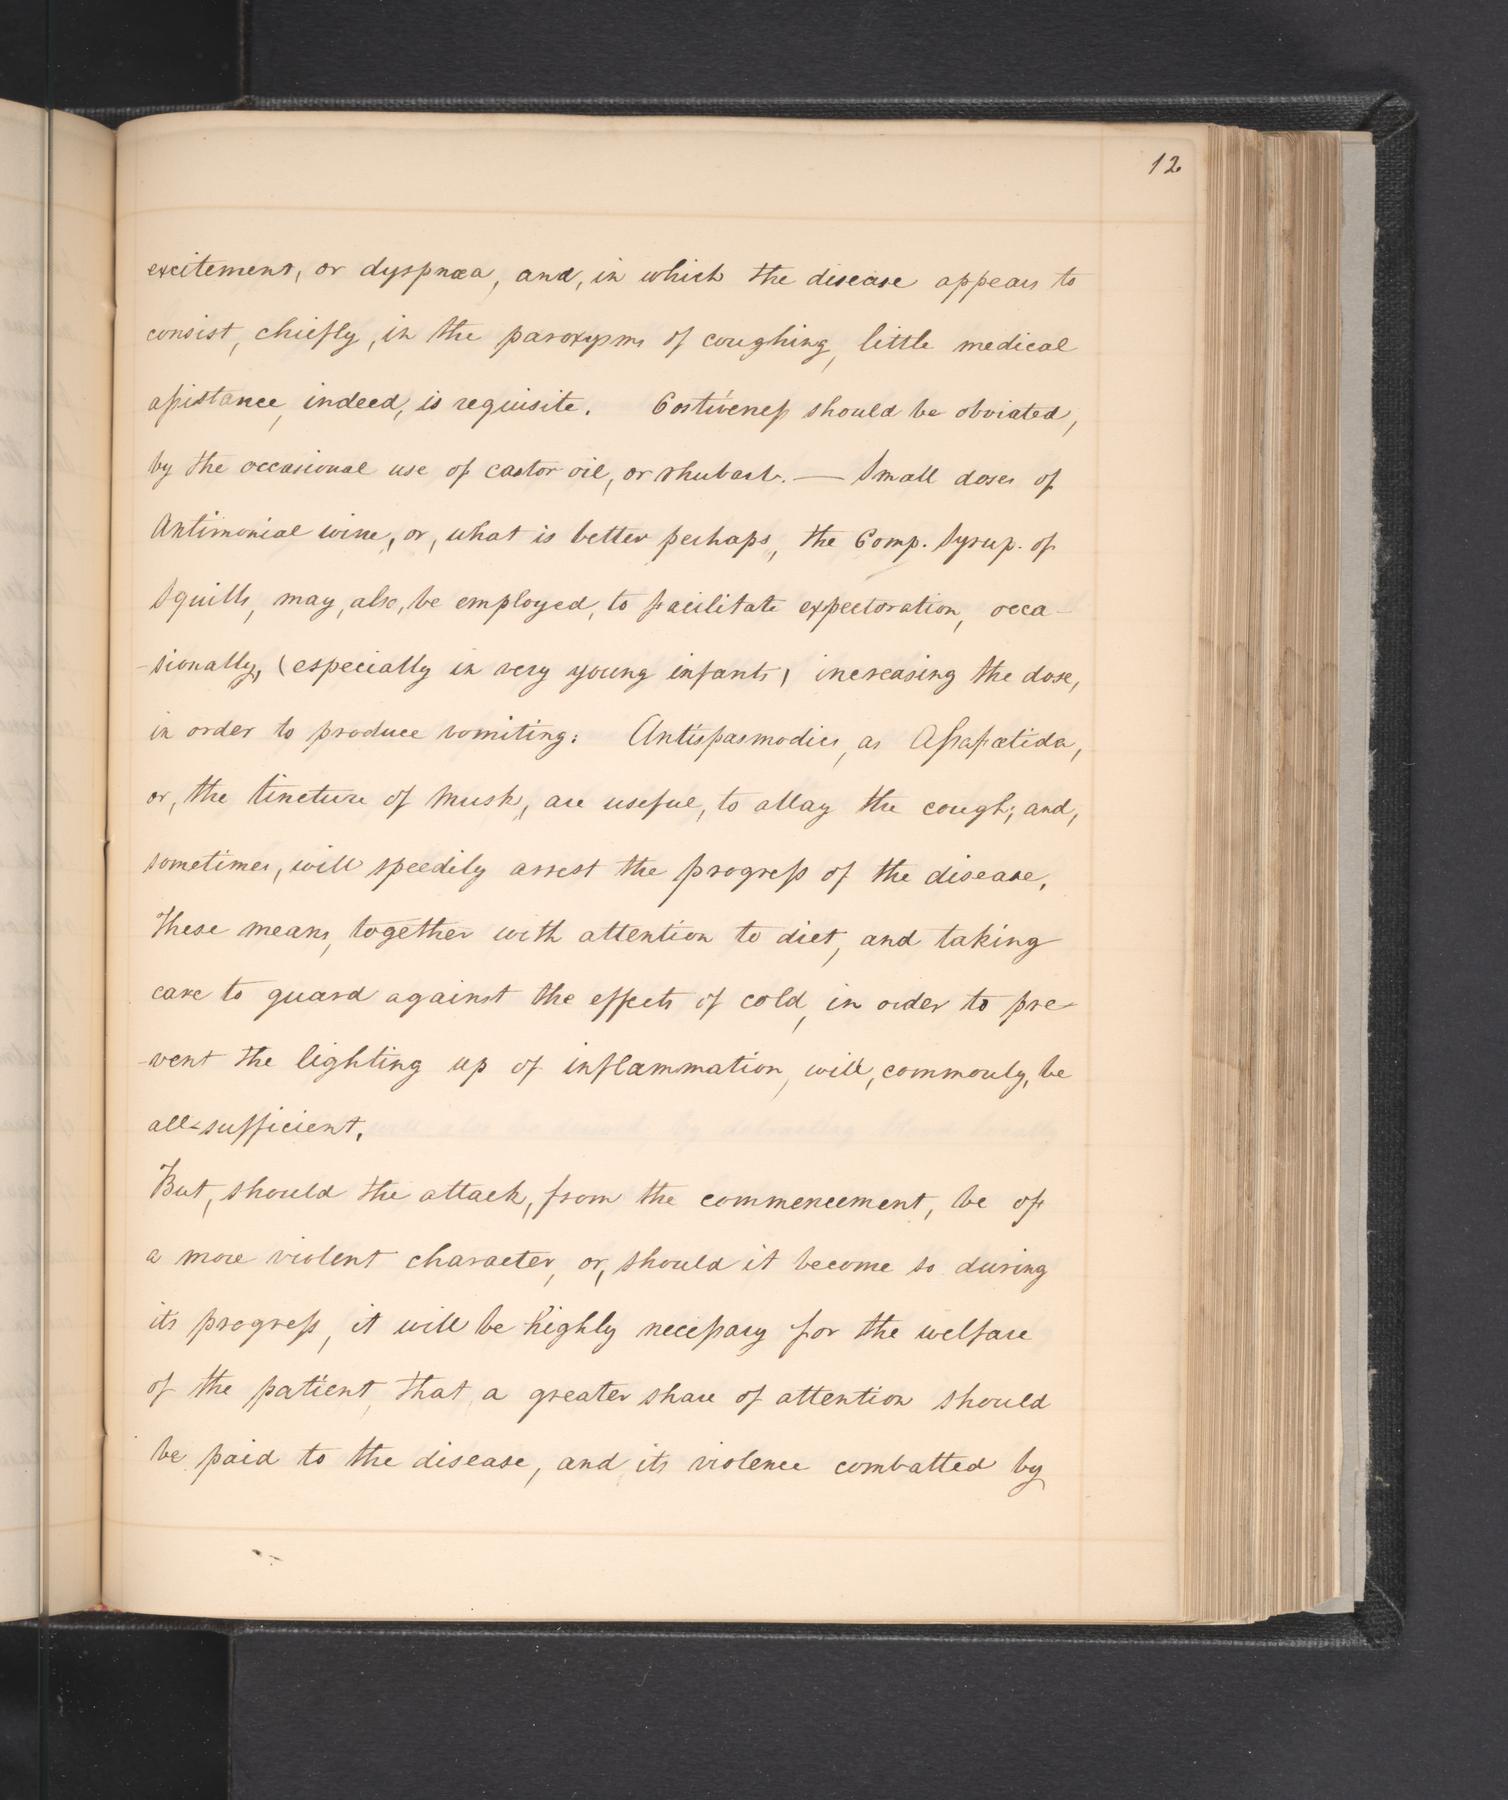 12
excitement, or dyspnœa, and, in which the disease appears to
consist, chiefly, in the paroxysms of coughing, little medical
assistance, indeed, is requisite. Costiveness should be obviated,
by the occasional use of castor oil, or rhubarb. — Small doses of
Antimonial wine, or, what is better perhaps, the Comp. Syrup. of
Squills, may, also, be employed, to facilitate expectoration, occa-
-sionally, (especially in very young infants) increasing the dose,
in order to produce vomiting: Antispasmodics, as Assafœtida,
or, the tincture of Musk, are useful, to allay the cough; and,
sometimes, will speedily arrest the progress of the disease.
These means, together with attention to diet, and taking
care to guard against the effects of cold, in order to pre-
-vent the lighting up of inflammation, will, commonly, be
all-sufficient.
But, should the attack, from the commencement, be of
a more violent character, or, should it become so during
its progress, it will be highly necessary for the welfare
of the patient, that, a greater share of attention should
be paid to the disease, and its violence combatted by